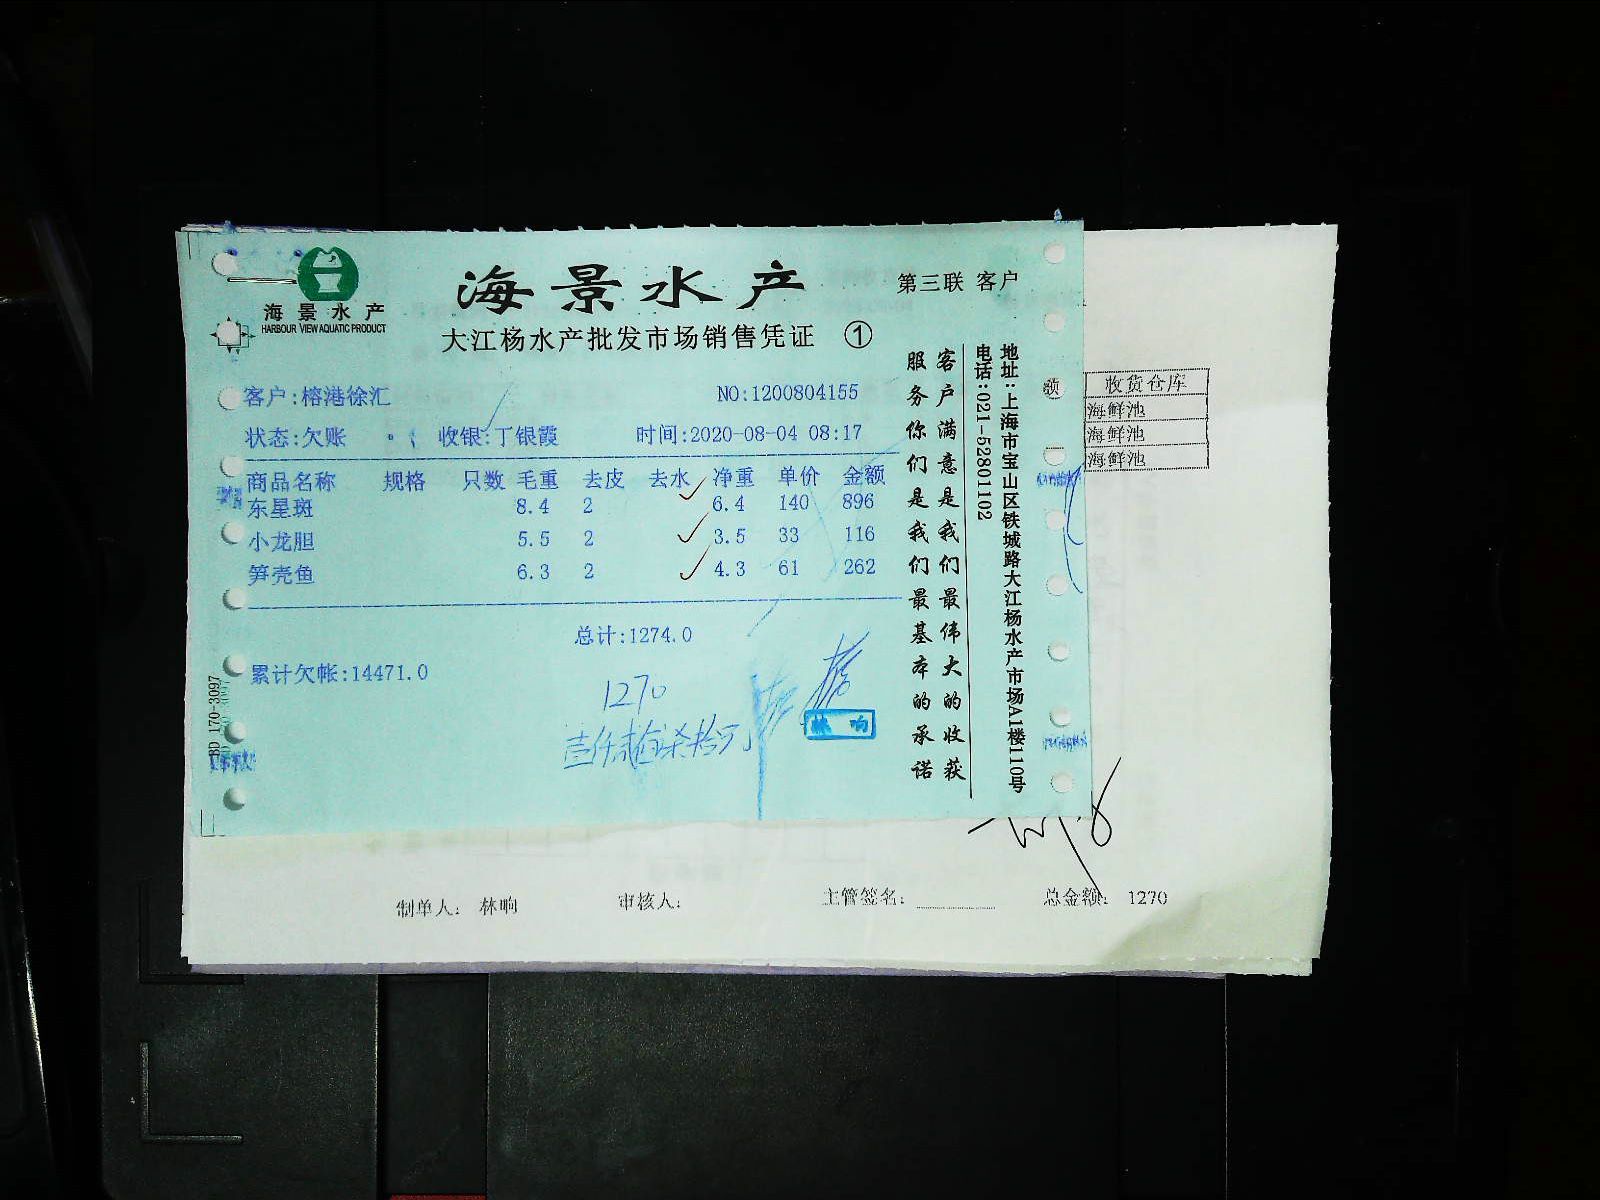 海景水产
HARBOUR VIEW AQUATIC PRODUCT
海景水产
第三联 客户
大江杨水产批发市场销售凭证 ①
客户:榕港徐汇 NO:1200804155
状态:欠账 收银:丁银霞 时间:2020-08-04 08:17
商品名称 规格 只数 毛重 去皮 去水 净重 单价 金额
东星斑 8.4 2 6.4 140 896
小龙胆 5.5 2 3.5 33 116
笋壳鱼 6.3 2 4.3 61 262
总计:1274.0
累计欠帐:14471.0
1270
壹仟贰佰柒拾元
林响
客户满意是我们最伟大的收获
服务你们是我们最基本的承诺
地址:上海市宝山区铁城路大江杨水产市场A1楼110号
电话:021-52801102
BD 170-3097
额 收货仓库
海鲜池
海鲜池
海鲜池
制单人: 林响 审核人: 主管签名: 总金额: 1270